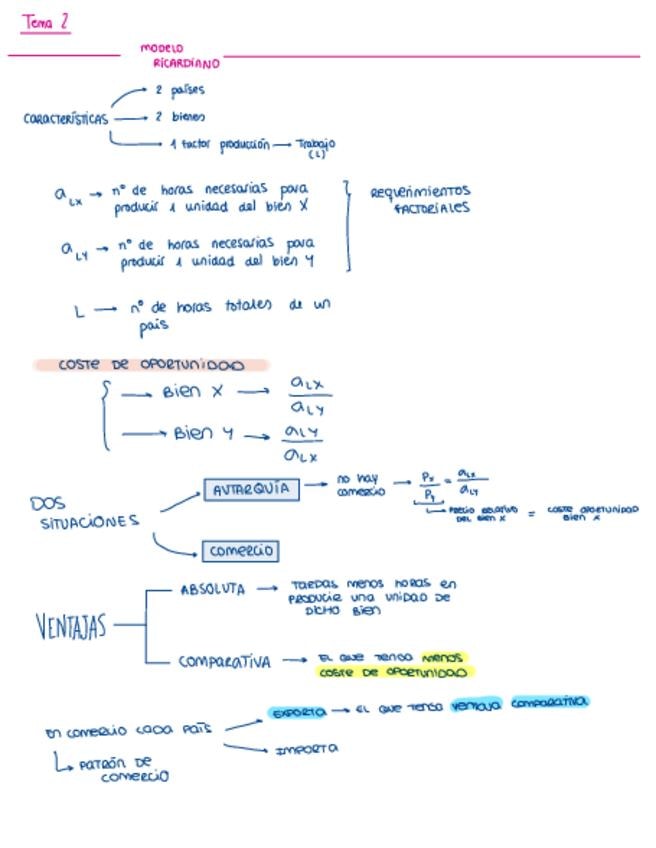 Tema 2
MODELO
RICARDIANO
CARACTERÍSTICAS
2 países
2 bienes
1 factor producción → Trabajo
(L)
aLX → nº de horas necesarias para
producir 1 unidad del bien X
REQUERIMIENTOS
FACTORIALES
aLY → nº de horas necesarias para
producir 1 unidad del bien Y
L → nº de horas totales de un
país
COSTE DE OPORTUNIDAD
→ Bien X → aLX
aLY
→ Bien Y → aLY
aLX
DOS
SITUACIONES
AUTARQUÍA → no hay
comercio → Px = aLX
Py aLY
PRECIO RELATIVO
DEL BIEN X = COSTE OPORTUNIDAD
BIEN X
comercio
VENTAJAS
ABSOLUTA → TARDAS MENOS HORAS EN
PRODUCIR UNA UNIDAD DE
DICHO BIEN
COMPARATIVA → EL QUE TENGO MENOS
COSTE DE OPORTUNIDAD
EN COMERCIO CADA PAÍS
EXPORTA → EL QUE TENGO VENTAJA COMPARATIVA
IMPORTA
PATRÓN DE
COMERCIO